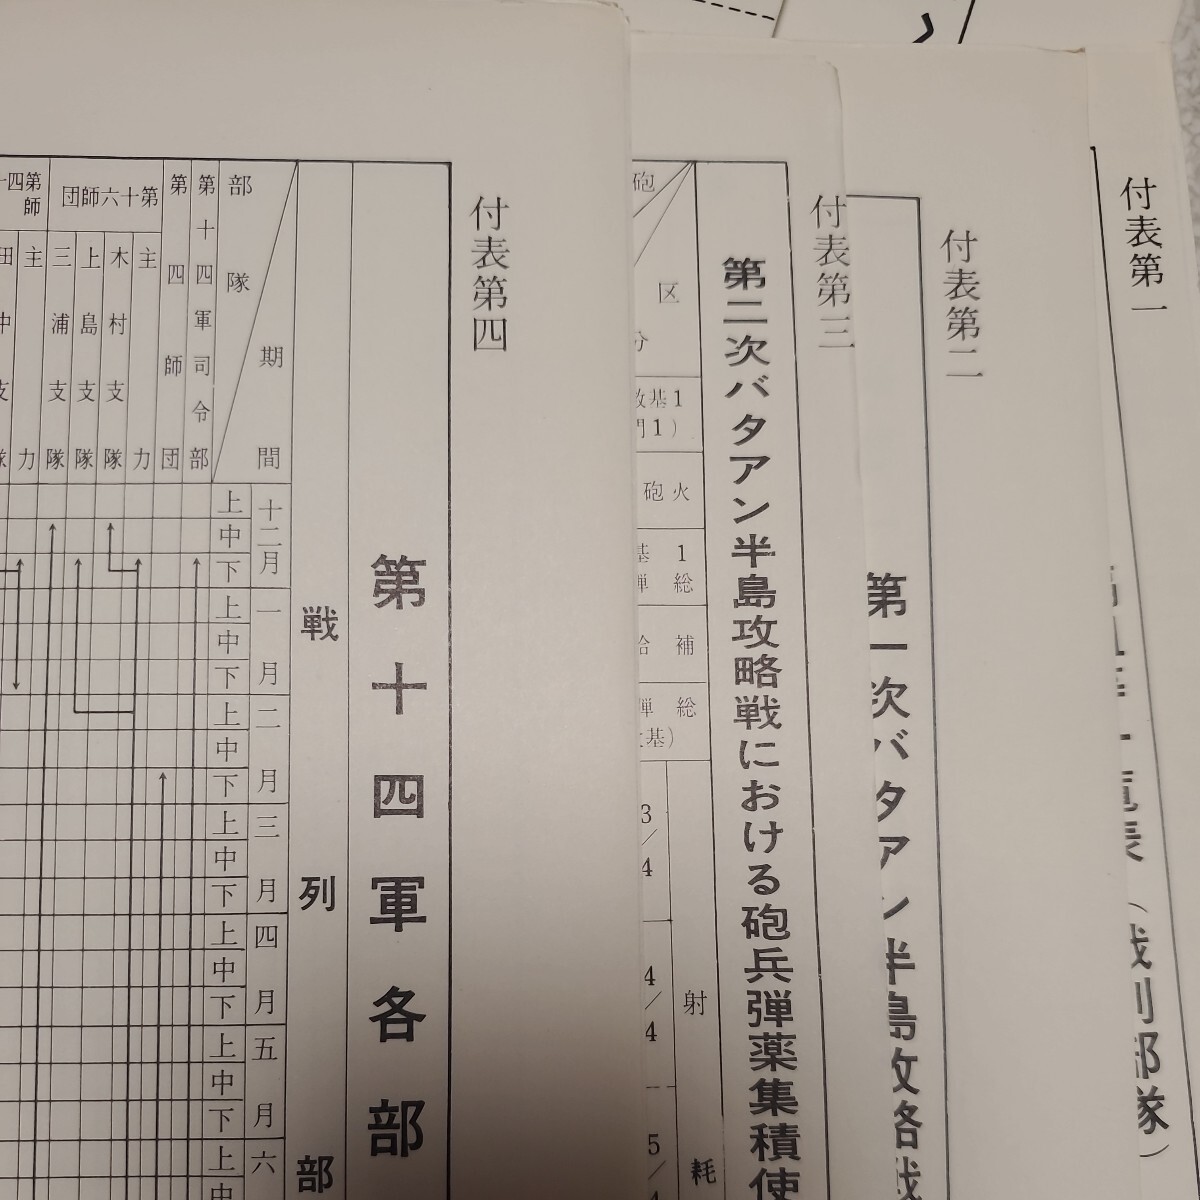 付表第一
一覧表(戦列部隊)
付表第二
第一次バタアン半島攻略戦
付表第三
第二次バタアン半島攻略戦における砲兵弾薬集積使
砲
区
分
数基1
門1)
砲火
基1
弾総
給補
弾総
基)
射
耗
3/4
4/4
5/
付表第四
第十四軍各部
戦列部
部隊
期間
第十四軍司令部
第四師団
第十六師団
主力
木村支隊
上島支隊
三浦支隊
第四十
師
主力
田中支隊
十二月
上
中
下
一月
上
中
下
二月
上
中
下
三月
上
中
下
四月
上
中
下
五月
上
中
下
六
上
中